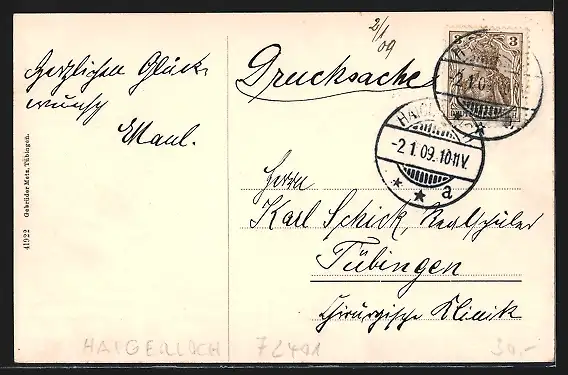 Herzlichen Glück-
wunsch
Maul.
41922 Gebrüder Metz, Tübingen.
2/1
09
Drucksache
3 3
-2.1.09.
HAIGERLOCH
-2.1.09.10-11V.
* * a
Herrn
Karl Schick, Realschüler
Tübingen
Chirurgische Klinik
HAIGERLOCH 72401 30,-